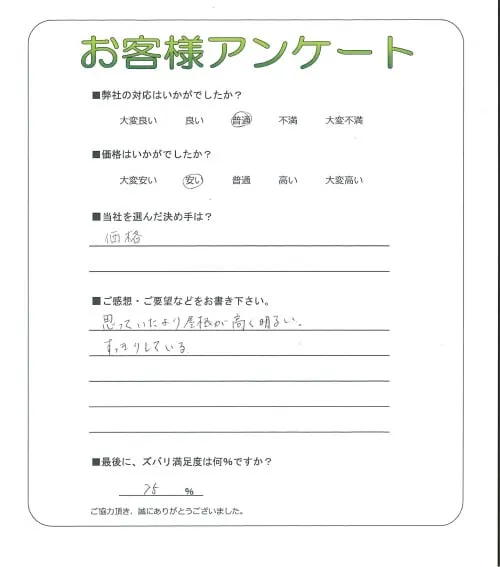 お客様アンケート
■弊社の対応はいかがでしたか？
大変良い 良い 普通 不満 大変不満
■価格はいかがでしたか？
大変安い 安い 普通 高い 大変高い
■当社を選んだ決め手は？
価格
■ご感想・ご要望などをお書き下さい。
思っていたより屋根が高く明るい。
すっきりしている
■最後に、ズバリ満足度は何％ですか？
75 ％
ご協力頂き、誠にありがとうございました。